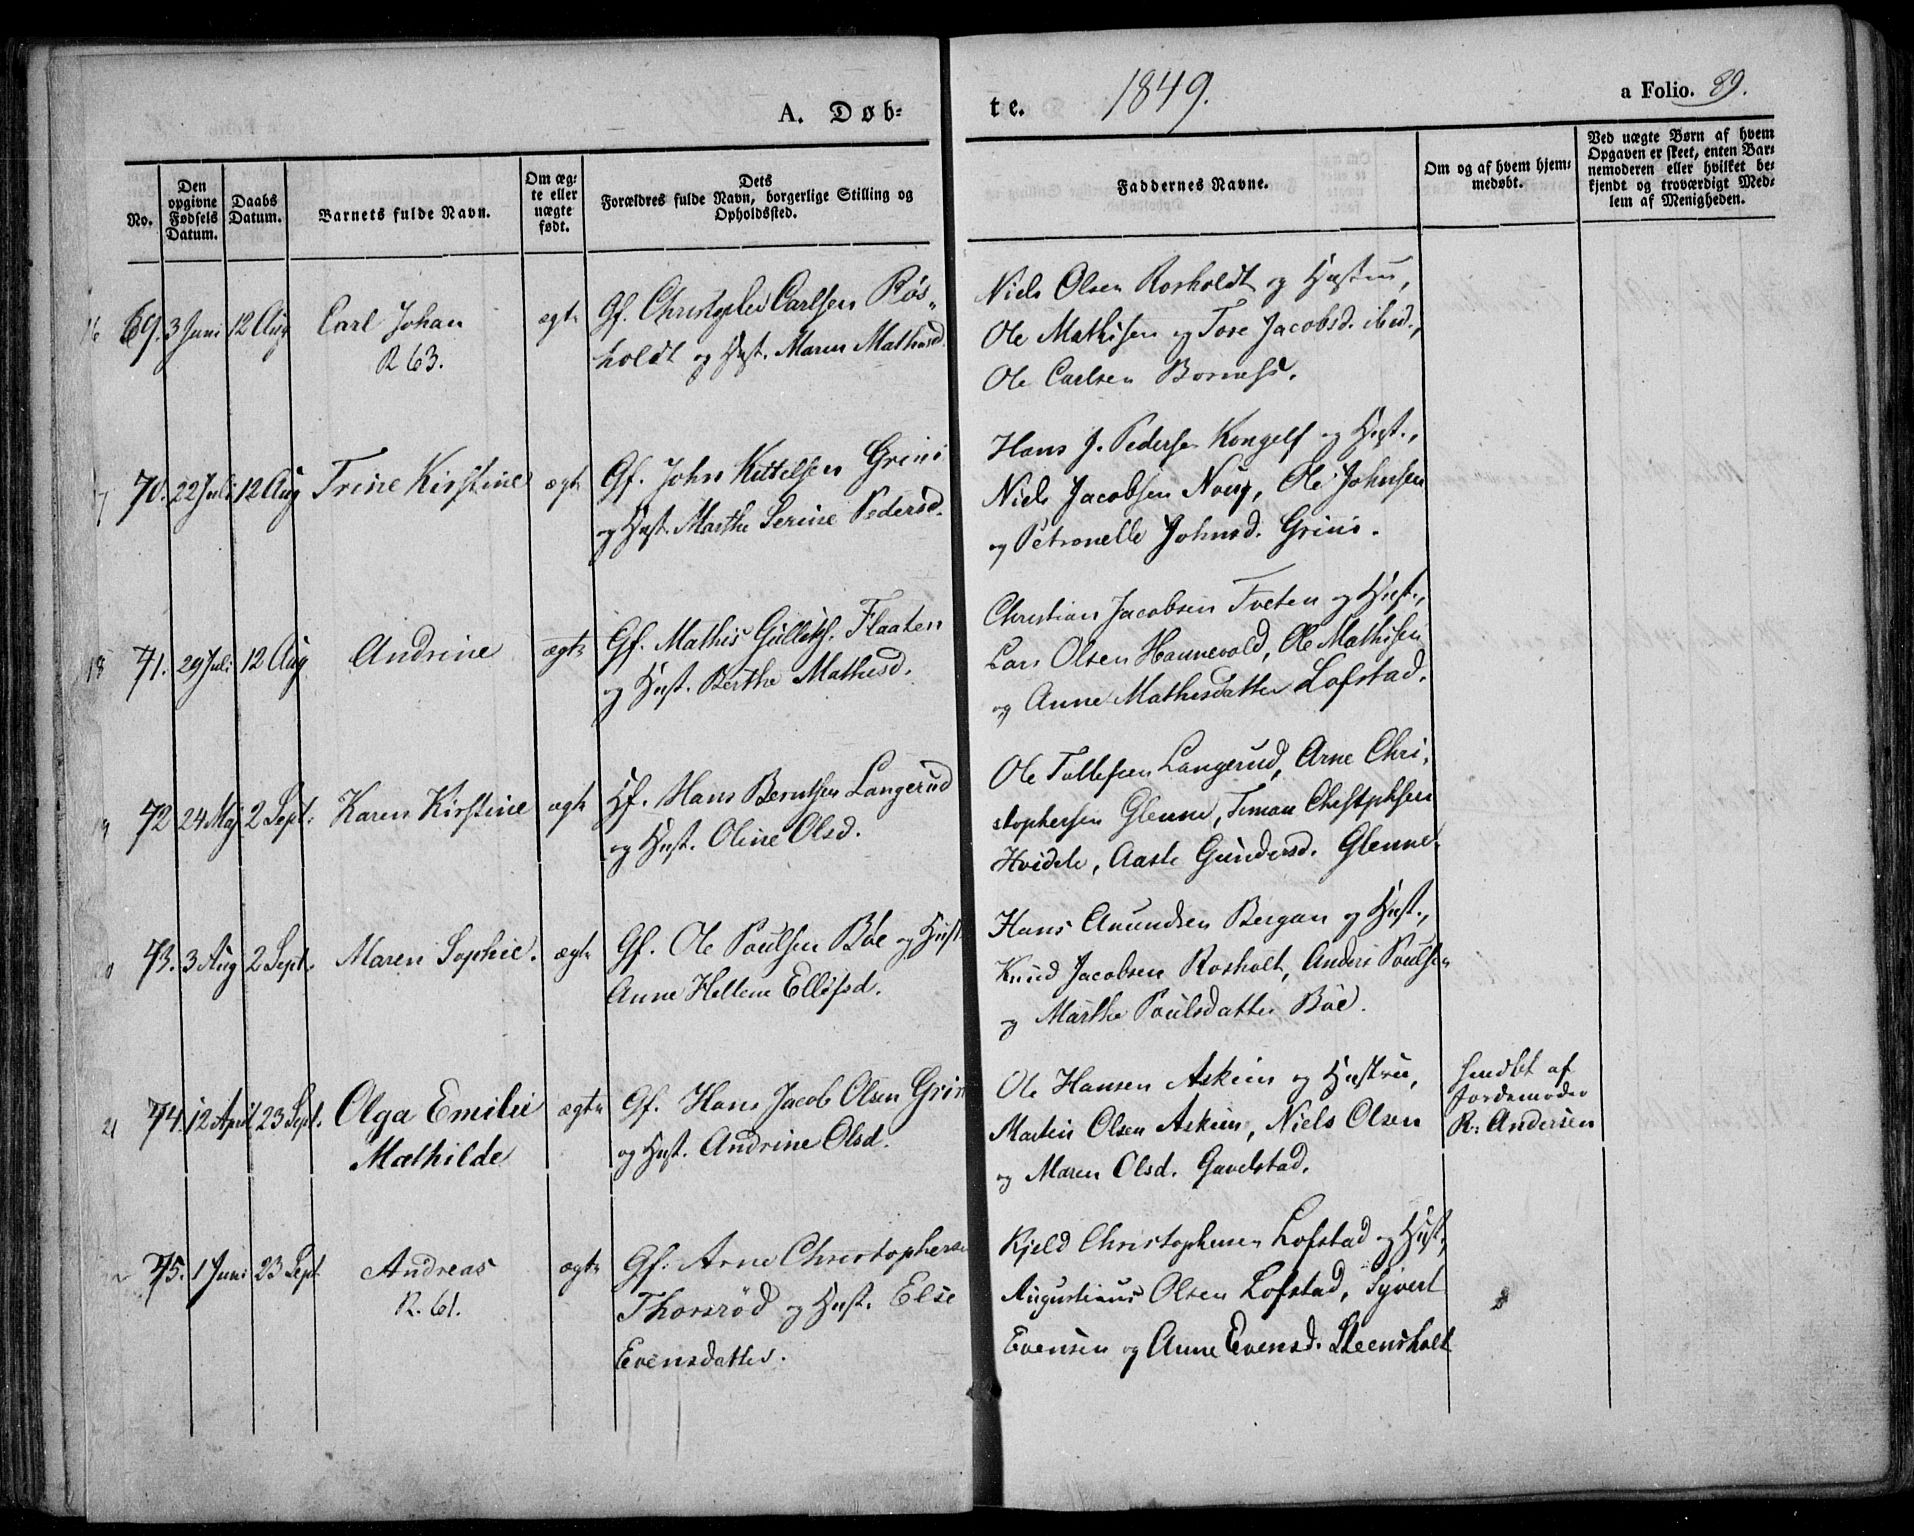 A. Døb-
te.
1849.
a Folio. 89.
No.
Den opgivne Fødsels Datum.
Daabs Datum.
Barnets fulde Navn.
Om ægte eller uægte født.
Dets Forældres fulde Navn, borgerlige Stilling og Opholdssted.
Faddernes Navne.
Om og af hvem hjemmedøbt.
Ved uægte Børn af hvem Opgaven er skeet, enten Barnemoderen eller hvilket bekjendt og troværdigt Medlem af Menigheden.
16 69. 3 Juni 12 Aug Carl Johan ægte Gf. Christopher Carlsen Røs-
R 63. holdt og Hust. Maren Mathisd.
Niels Olsen Rosholdt og Hustru,
Ole Mathisen og Tore Jacobsd. ibid.,
Ole Carlsen
70. 22 Juli 12 Aug Trine Kirstine ægte Gf. John Kittelsen Grini
og Hust. Marthe Serine Pedersd.
Hans J. Pedersen Kongelf og Hust.,
Niels Jacobsen Ole Johnsen
og Petronelle Johnsd. Grini.
18 71. 29 Juli 12 Aug Andrine ægte Gf. Mathis Gulliks. Flaaten
og Hust. Berthe Mathisd.
Christian Jacobsen Tveten og Hust.,
Lars Olsen Hannevold, Ole Mathisen
og Anne Mathisdatter Lofstad.
19 72 24 Maj 2 Sept. Karen Kirstine ægte Hf. Hans Berntsen Langerud
og Hust. Oline Olsd.
Ole Tollefsen Langerud, Arne Chri-
stophersen Glenne,
Hvidele, Aaste Gundersd. Glenne.
73. 3 Aug 2 Sept. Maren Sophie. ægte Gf. Ole Poulsen Bøe og Hust
Anne Hellene Ellefsd.
Hans Amundsen Bergan og Hust.,
Knud Jacobsen Rosholt, Anders Poulsen
og Marthe Poulsdatter Bøe.
21 74. 12 April 23 Sept. Olga Emilie ægte Gf. Hans Jacob Olsen Grin
Mathilde og Hust. Andrine Olsd.
Ole Hansen Askim og Hustru,
Martin Olsen Askim, Niels Olsen
og Maren Olsd. Gavelstad.
hmdbt af
Jordemoder
R. Andersen
75. 1 Juni 23 Sept. Andreas ægte Gf. Arne Christophersen
R. 61. Thorsrød og Hust. Else
Evensdatter.
Kjeld Christophersen Lofstad og Hust.,
Augustinus Olsen Lofstad, Syvert
Evensen og Anne Evensd. Steensholt